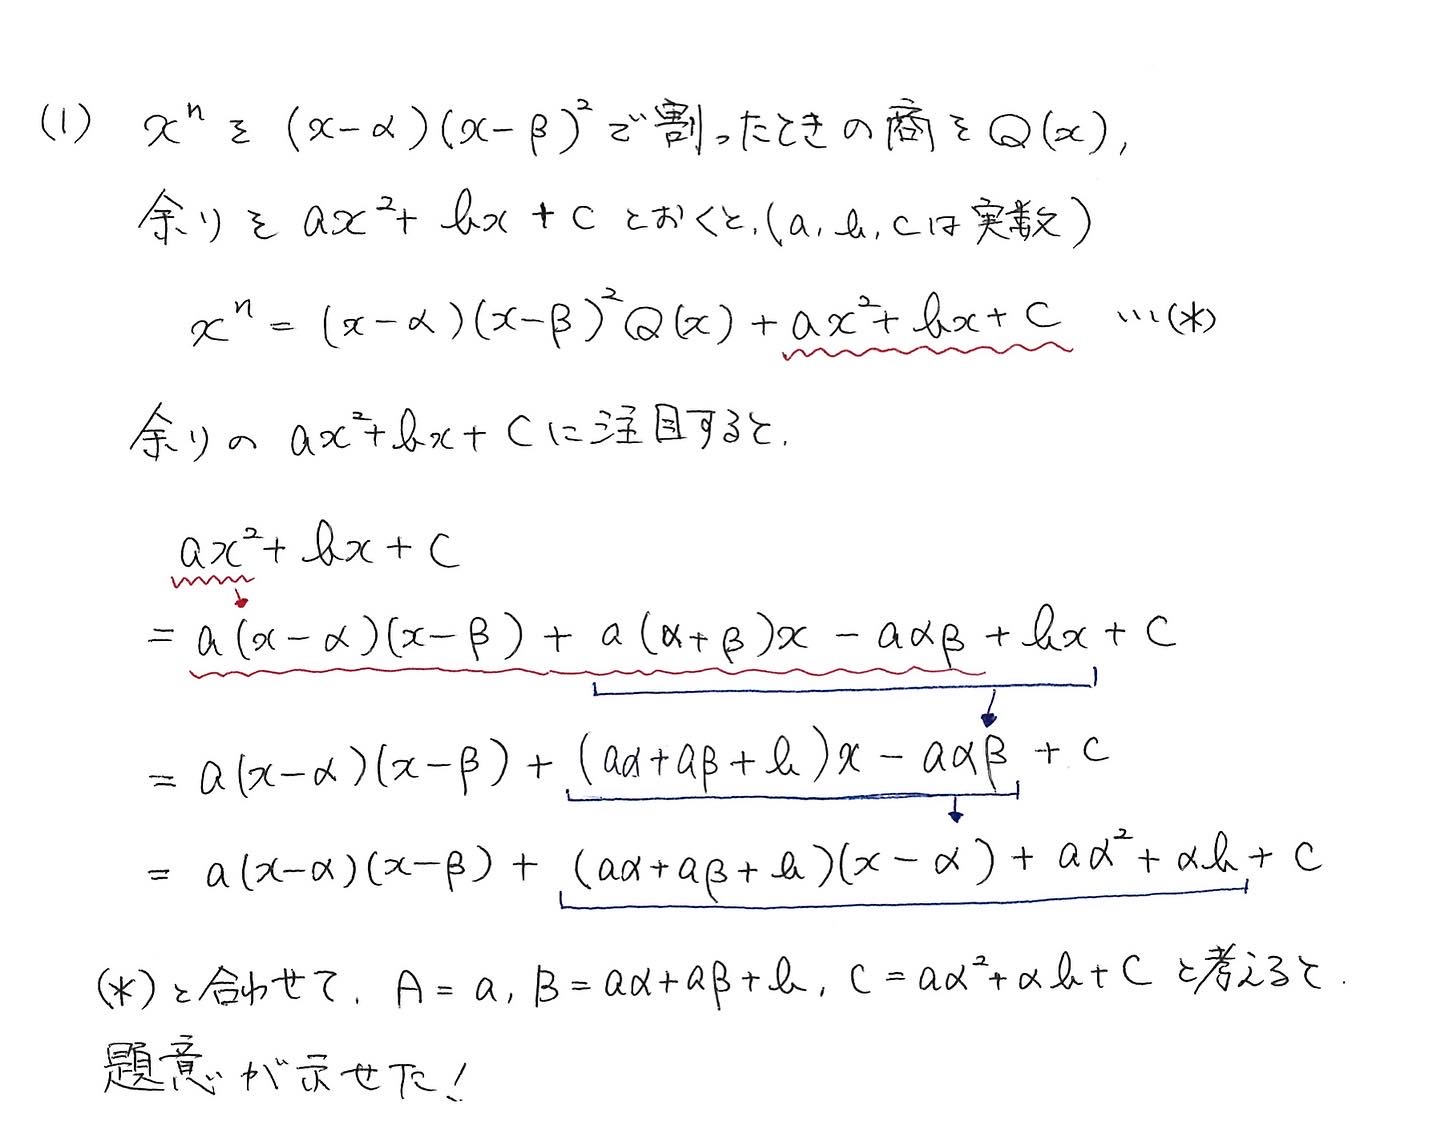 (1) xⁿを (x-α)(x-β)²で割ったときの商をQ(x),
余りを ax²+bx+c とおくと、(a, b, cは実数)
xⁿ = (x-α)(x-β)²Q(x) + ax²+bx+c …(*)
余りの ax²+bx+c に注目すると、
ax²+bx+c
= a(x-α)(x-β) + a(α+β)x - aαβ + bx + c
= a(x-α)(x-β) + (aα+aβ+b)x - aαβ + c
= a(x-α)(x-β) + (aα+aβ+b)(x-α) + aα²+αb+c
(*)と合わせて、A=a, B=aα+aβ+b, C=aα²+αb+c と考えると、
題意が示せた!